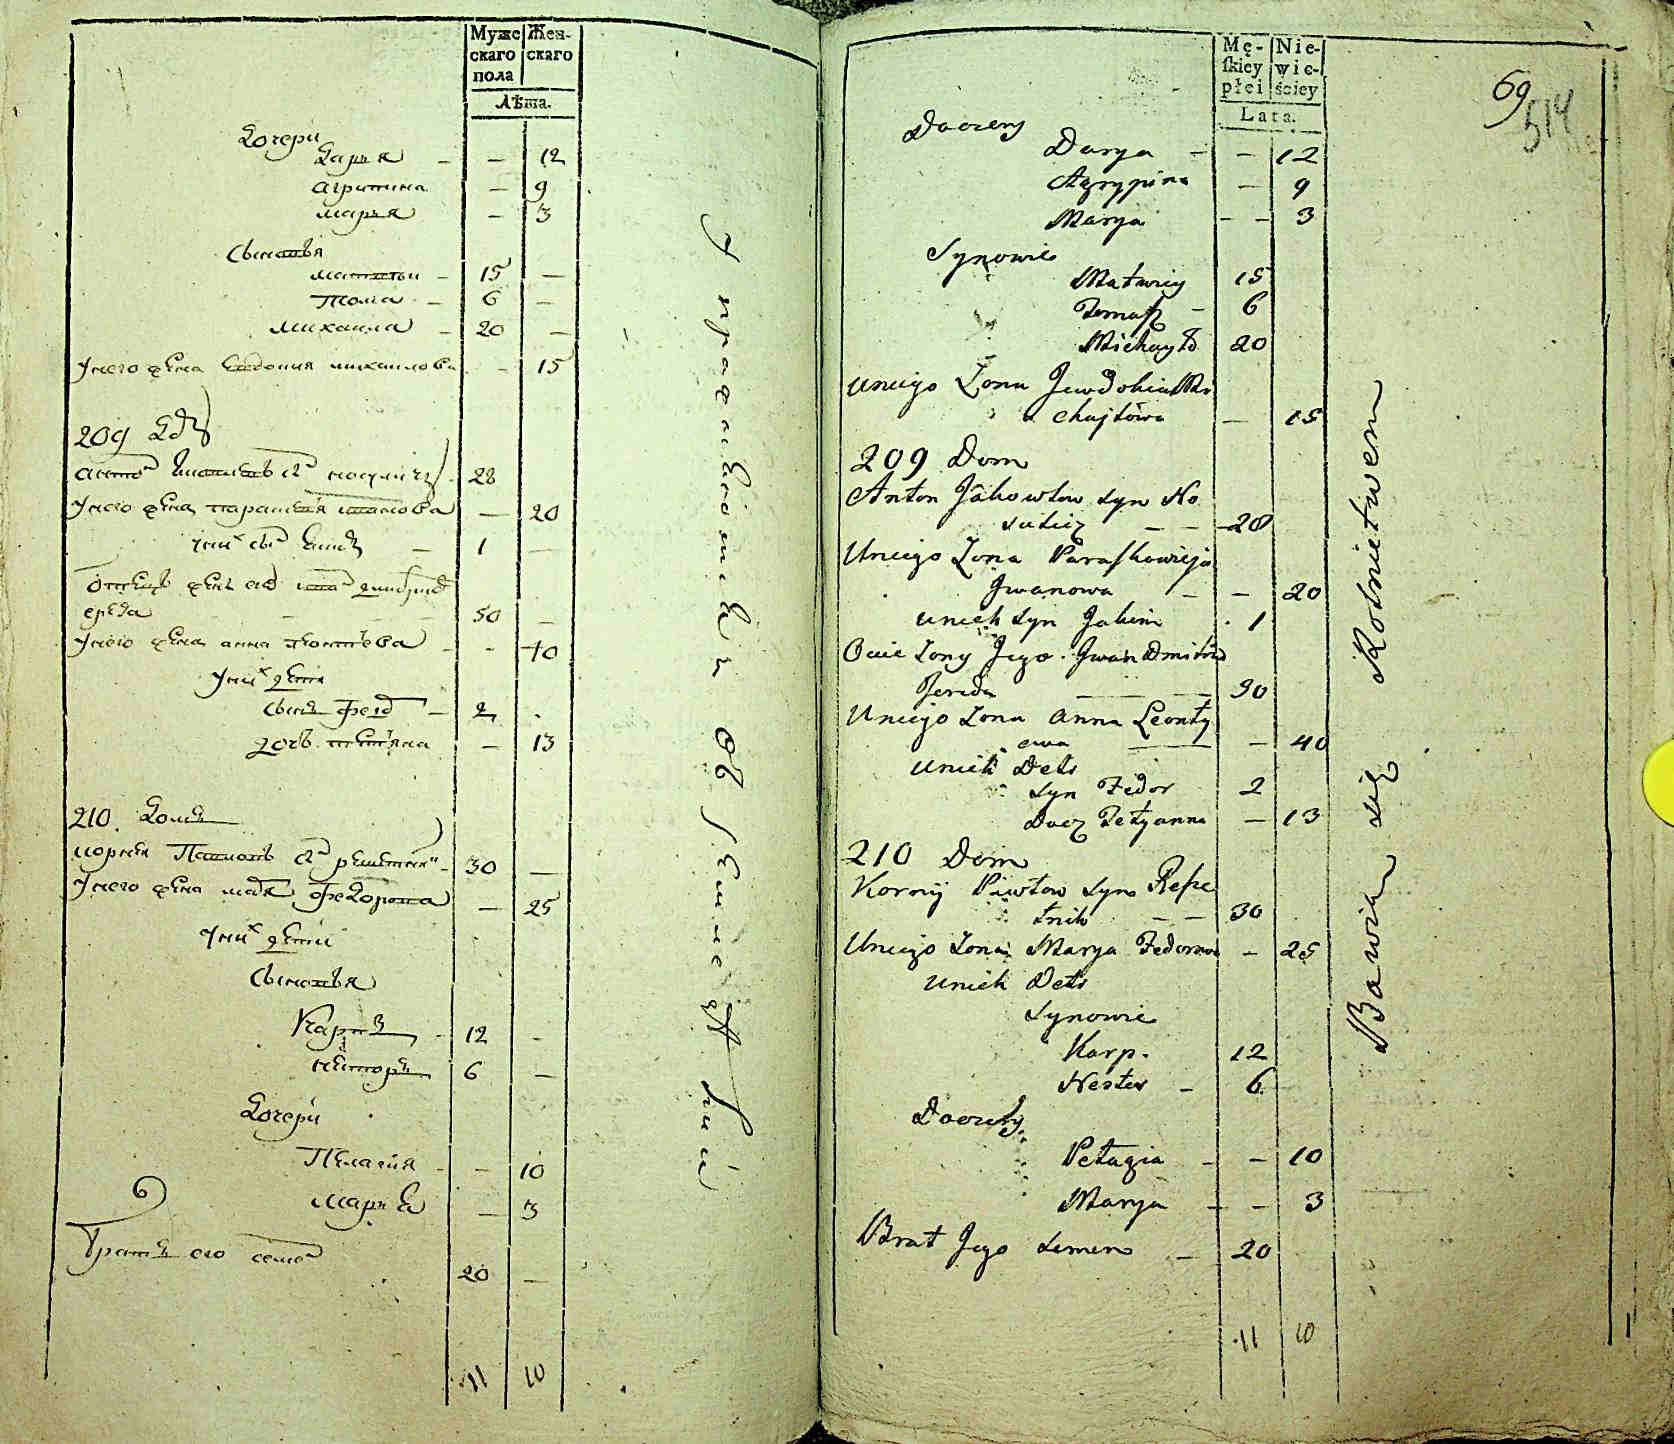 Муже
скаго
пола
Жен-
скаго
Лѣта.
Дочери
Дарья - - 12
Агрипина - 9
Марья - 3
Сыновья
Матвѣи - 15 -
Тома - 6 -
Михаила - 20 -
У него жена Евдокия Михаилова - 15
209 Дом
28
У него жена Параскевия Иванова - 20
У них сын Еким - 1 -
50 -
У него жена Анна Леонтьева - - 40
У них дети
сын Федор - 2 -
дочь Тетяна - 13
210. Домъ
Корнѣй сын Решетник - 30 -
У него жена Марья Федорова - 25
У них дети
Сыновья
Карпъ - 12 -
Нестеръ 6 -
Дочери
Пелагия - - 10
Марья - 3
Братъ его Семен
20 -
11 10
Mę-
skiey
płci
Nie-
wie-
ściey
Lata.
69
514
Doczery
Darya - - 12
Agrypina - 9
Marya - - 3
Synowie
Matwiey 15
Tomasz - 6
Michayło 20
Uniego Zona Jewdokia Mi
chayłowa - 15
209 Dom
Anton Jakowłow syn No
sulicz - - 28
Uniego Zona Paraskowieja
Jwanowa - - 20
Unich Syn Jakim 1
Ociec Zony Jego Jwan Dmitro
Jereda - - 50
Uniego Zona Anna Leonty
ewa - - 40
Unich Deti
Syn Fedor 2
Docz Tetyanna - 13
210 Dom
Korniy Piwłow syn Resze
tnik - - 30
Uniego Zona Marya Fedorowa - 25
Unich Deti
Synowie
Karp. 12
Nester - 6
Doczery
Pełagia - - 10
Marya - - 3
Brat Jego Semen - 20
11 10
Bawią się Rolnictwem